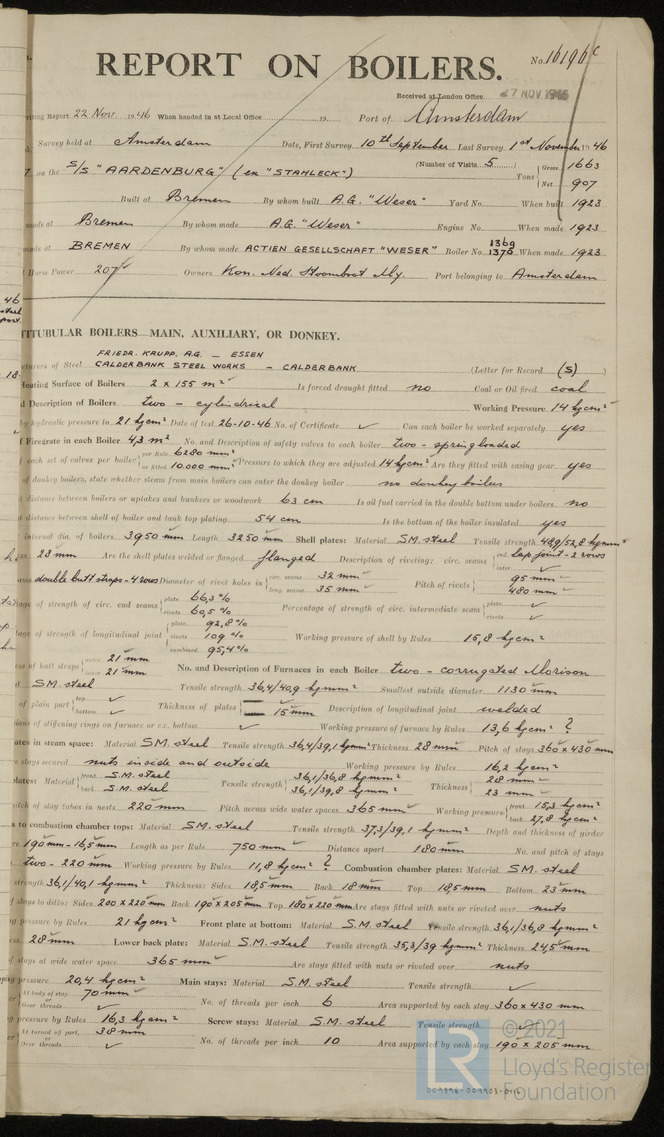 No. 16196c
REPORT ON BOILERS.
Received at London Office 27 NOV 1946
iting Report 22 Nov. 1946 When handed in at Local Office 19 Port of Amsterdam
Survey held at Amsterdam Date, First Survey 10th September Last Survey 1st November 1946
on the S/S "AARDENBURG" (ex "STAHLECK") (Number of Visits 5) Tons Gross 1663 Net 907
Built at Bremen By whom built A.G. "Weser" Yard No. When built 1923
made at Bremen By whom made A.G. "Weser" Engine No. When made 1923
made at BREMEN By whom made ACTIEN GESELLSCHAFT "WESER" Boiler No. 1369 1370 When made 1923
Horse Power 207 Owners Kon. Ned. Stoomboot My. Port belonging to Amsterdam
TITUBULAR BOILERS—MAIN, AUXILIARY, OR DONKEY.
FRIEDR. KRUPP. A.G. — ESSEN
cturers of Steel CALDERBANK STEEL WORKS - CALDERBANK (Letter for Record (S))
Heating Surface of Boilers 2 x 155 m² Is forced draught fitted no Coal or Oil fired coal
d Description of Boilers two - cylindrical Working Pressure 14 kg cm²
by hydraulic pressure to 21 kg cm² Date of test 26-10-46 No. of Certificate ✓ Can each boiler be worked separately yes
f Firegrate in each Boiler 4,3 m² No. and Description of safety valves to each boiler two - spring loaded
f each set of valves per boiler per Rule 6280 mm² as fitted 10.000 mm² Pressure to which they are adjusted 14 kg cm² Are they fitted with easing gear yes
of donkey boilers, state whether steam from main boilers can enter the donkey boiler no donkey boilers
distance between boilers or uptakes and bunkers or woodwork 63 cm Is oil fuel carried in the double bottom under boilers no
distance between shell of boiler and tank top plating 54 cm Is the bottom of the boiler insulated yes
internal dia. of boilers 3950 mm Length 3250 mm Shell plates: Material S.M. steel Tensile strength 48,9/52,8 kg mm²
28 mm Are the shell plates welded or flanged flanged Description of riveting: circ. seams end lap joint - 2 rows inter ✓
double butt straps - 4 rows Diameter of rivet holes in circ. seams 32 mm long. seams 35 mm Pitch of rivets 95 mm 480 mm
age of strength of circ. end seams plate 66,3% rivets 60,5% Percentage of strength of circ. intermediate seam plate ✓ rivets ✓
age of strength of longitudinal joint plate 92,8% rivets 109% combined 95,4% Working pressure of shell by Rules 15,8 kg cm²
ss of butt straps outer 21 mm inner 21 mm No. and Description of Furnaces in each Boiler two - corrugated Morison
S.M. steel Tensile strength 36,4/40,9 kg mm² Smallest outside diameter 1130 mm
of plain part top ✓ bottom ✓ Thickness of plates 15 mm Description of longitudinal joint welded
ons of stiffening rings on furnace or c.c. bottom ✓ Working pressure of furnace by Rules 13,6 kg cm² ?
ates in steam space: Material S.M. steel Tensile strength 36,4/39,1 kg mm² Thickness 28 mm Pitch of stays 360 x 430 mm
e stays secured nuts inside and outside Working pressure by Rules 16,2 kg cm²
plates: Material front S.M. steel back S.M. steel Tensile strength 36,1/36,8 kg mm² 36,1/39,8 kg mm² Thickness 28 mm 23 mm
itch of stay tubes in nests 220 mm Pitch across wide water spaces 365 mm Working pressure front 15,3 kg cm² back 27,8 kg cm²
s to combustion chamber tops: Material S.M. steel Tensile strength 37,3/39,1 kg mm² Depth and thickness of girder
re 190 mm - 16,5 mm Length as per Rule 750 mm Distance apart 180 mm No. and pitch of stays
two - 220 mm Working pressure by Rules 11,8 kg cm² ? Combustion chamber plates: Material S.M. steel
strength 36,1/40,1 kg mm² Thickness: Sides 18,5 mm Back 18 mm Top 18,5 mm Bottom 23 mm
f stays to ditto: Sides 200 x 220 mm Back 190 x 205 mm Top 180 x 220 mm Are stays fitted with nuts or riveted over nuts
pressure by Rules 21 kg cm² Front plate at bottom: Material S.M. steel Tensile strength 36,1/36,8 kg mm²
28 mm Lower back plate: Material S.M. steel Tensile strength 35,3/39 kg mm² Thickness 24,5 mm
f stays at wide water space 365 mm Are stays fitted with nuts or riveted over nuts
pressure 20,4 kg cm² Main stays: Material S.M. steel Tensile strength ✓
At body of stay 70 mm or Over threads ✓ No. of threads per inch 6 Area supported by each stay 360 x 430 mm
pressure by Rules 16,3 kg cm² Screw stays: Material S.M. steel Tensile strength ✓
At turned off part 38 mm or Over threads ✓ No. of threads per inch 10 Area supported by each stay 190 x 205 mm
© 2021
LR Lloyd's Register
Foundation
009896-009903-0